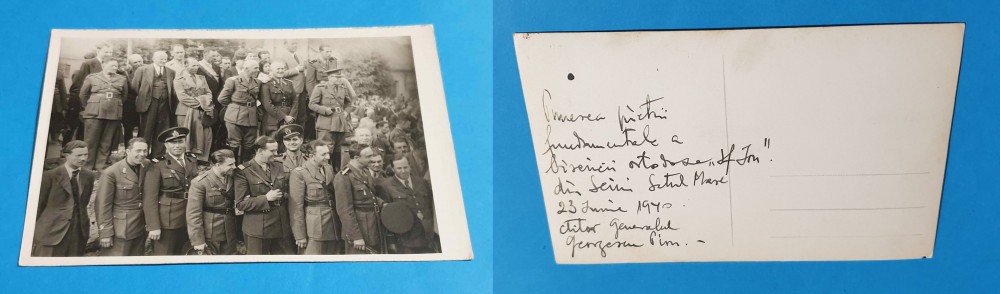 Punerea pietrii
fundamentale a
bisericii ortodoxe „Sf Ion".
din Seini Satul Mare
23 Iunie 1940.
ctitor generalul
Georgescu Pion. -